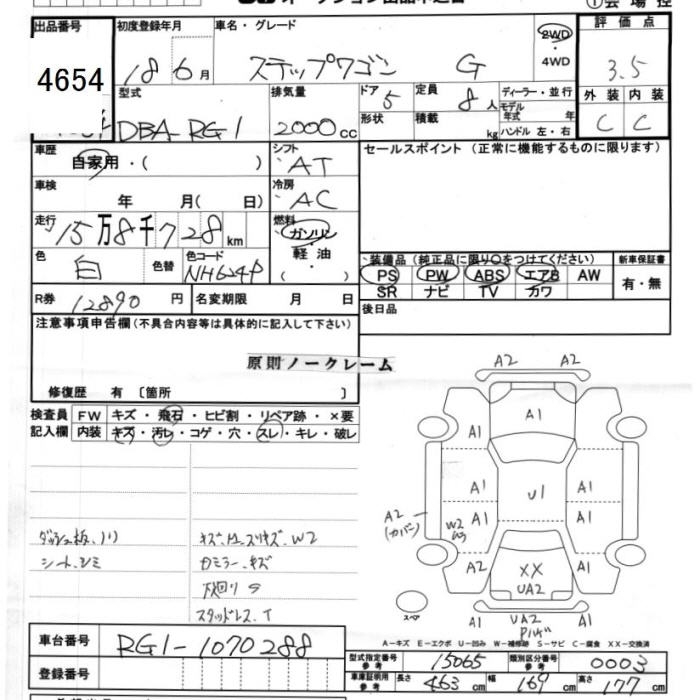 オークション出品申込書
①会場控
出品番号 初度登録年月 車名・グレード 評価点
4654 18 6月 ステップワゴン G 2WD・4WD 3.5
型式 排気量 ドア 5 定員 8人 ディーラー・並行 外装 内装
DBA-RG1 2000cc 形状 積載 kg モデル年式 年 C C
ハンドル 左・右
車歴 自家用・( ) シフト AT セールスポイント(正常に機能するものに限ります)
車検 年 月( 日) 冷房 AC
走行 15万8千728km 燃料 ガソリン・軽油・( )
色 白 色替 色コード NH624P
装備品(純正品に限り○をつけてください) 新車保証書
PS PW ABS エアB AW 有・無
SR ナビ TV カワ
R券 12890円 名変期限 月 日 後日品
注意事項申告欄(不具合内容等は具体的に記入して下さい)
原則ノークレーム
修復歴 有〔箇所 〕
検査員 FW キズ・飛石・ヒビ割・リペア跡・×要
記入欄 内装 キズ・汚レ・コゲ・穴・スレ・キレ・破レ
ダッシュ板、ノリ
シート、シミ
キズ、凹、スリキズ、W2
カミラー、キズ
下廻り S
スタッドレス、T
A2 A2
A1
A1 A1
A1 U1 A1
A1 A1
A2 (カバー)
W2
A2 XX A1
UA2
スペア
A1 UA2 A1
A-キズ E-エクボ U-凹み W-補修跡 S-サビ C-腐食 XX-交換済
車台番号 RG1-1070288
登録番号
型式指定番号 参考 15065 類別区分番号 参考 0003
車庫証明用 参考 長さ 463cm 幅 169cm 高さ 177cm